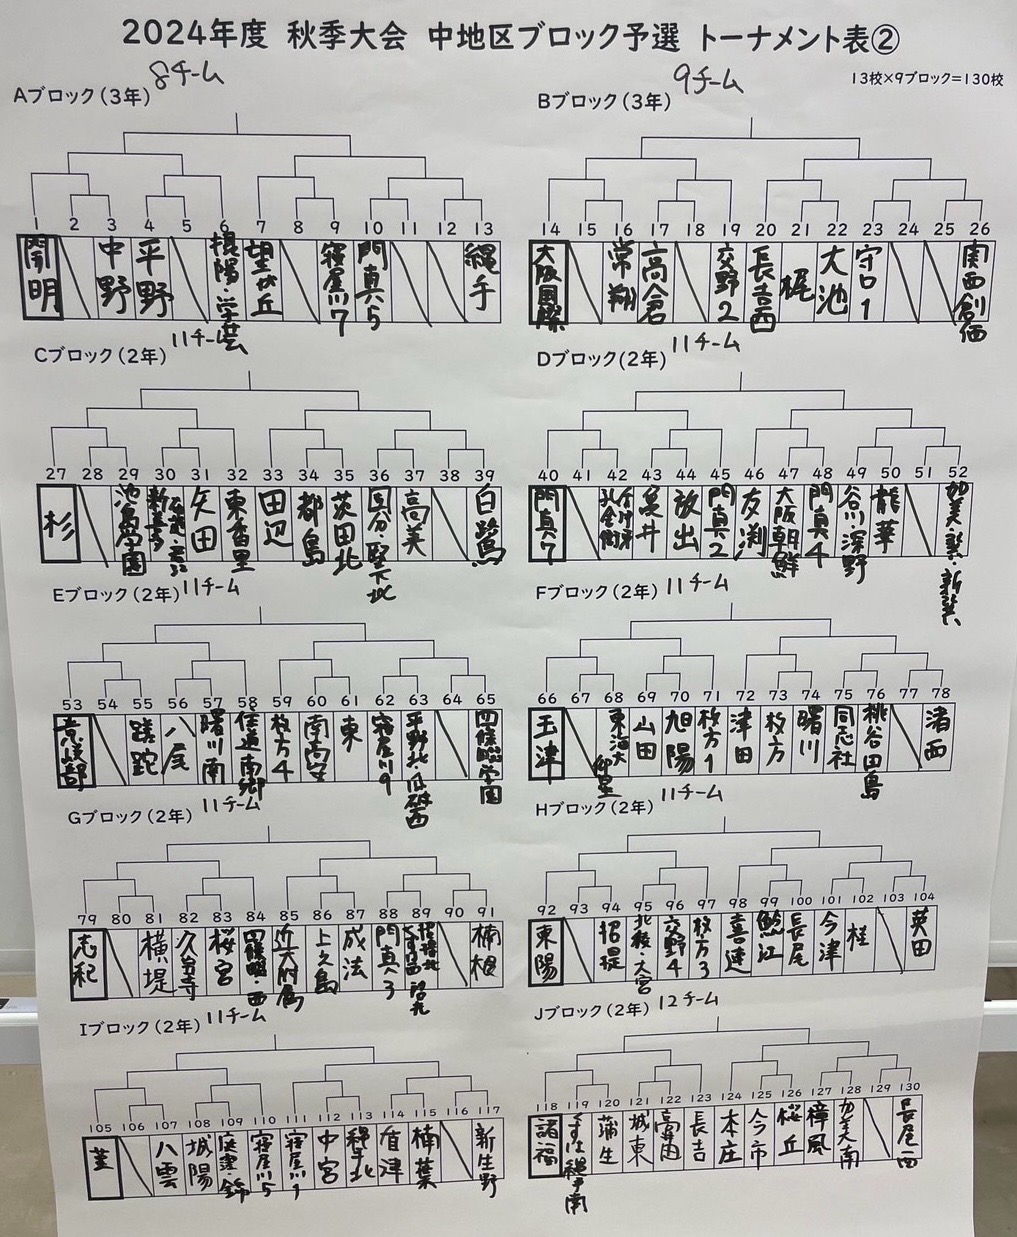 2024年度 秋季大会 中地区ブロック予選 トーナメント表②
13校×9ブロック=130校
Aブロック(3年) 8チーム
1 2 3 4 5 6 7 8 9 10 11 12 13
開明 中野 平野 望が丘 寝屋川7 門真5 縄手
Bブロック(3年) 9チーム
14 15 16 17 18 19 20 21 22 23 24 25 26
大阪国際 常翔 高倉 交野2 長吉西 梶 大池 守口1 関西創価
Cブロック(2年) 11チーム
27 28 29 30 31 32 33 34 35 36 37 38 39
杉 池島学園 矢田 東香里 田辺 都島 茨田北 国分・堅下北 高美 白鷺
Dブロック(2年) 11チーム
40 41 42 43 44 45 46 47 48 49 50 51 52
門真7 放出 門真2 友渕 大阪朝鮮 門真4 谷川深野 龍華
Eブロック(2年) 11チーム
53 54 55 56 57 58 59 60 61 62 63 64 65
意岐部 蹉跎 八尾 曙川南 枚方4 南高安 東 寝屋川9 平野北・瓜破西 四條畷学園
Fブロック(2年) 11チーム
66 67 68 69 70 71 72 73 74 75 76 77 78
玉津 東海大仰星 山田 旭陽 枚方1 津田 枚方 曙川 同志社 桃谷田島 渚西
Gブロック(2年) 11チーム
79 80 81 82 83 84 85 86 87 88 89 90 91
志紀 横堤 久宝寺 桜宮 四條畷・西 近大附属 上之島 成法 門真3 楠根
Hブロック(2年) 11チーム
92 93 94 95 96 97 98 99 100 101 102 103 104
東陽 招提 北稜・大宮 交野4 枚方3 喜連 鯰江 長尾 今津 桂 英田
Iブロック(2年) 11チーム
105 106 107 108 109 110 111 112 113 114 115 116 117
菫 八雲 城陽 庭窪・錦 寝屋川5 寝屋川1 中宮 縄手北 盾津 楠葉 新生野
Jブロック(2年) 12チーム
118 119 120 121 122 123 124 125 126 127 128 129 130
諸福 くずは縄手南 蒲生 城東 長吉 本庄 今市 桜丘 樟風 加美南 長尾西